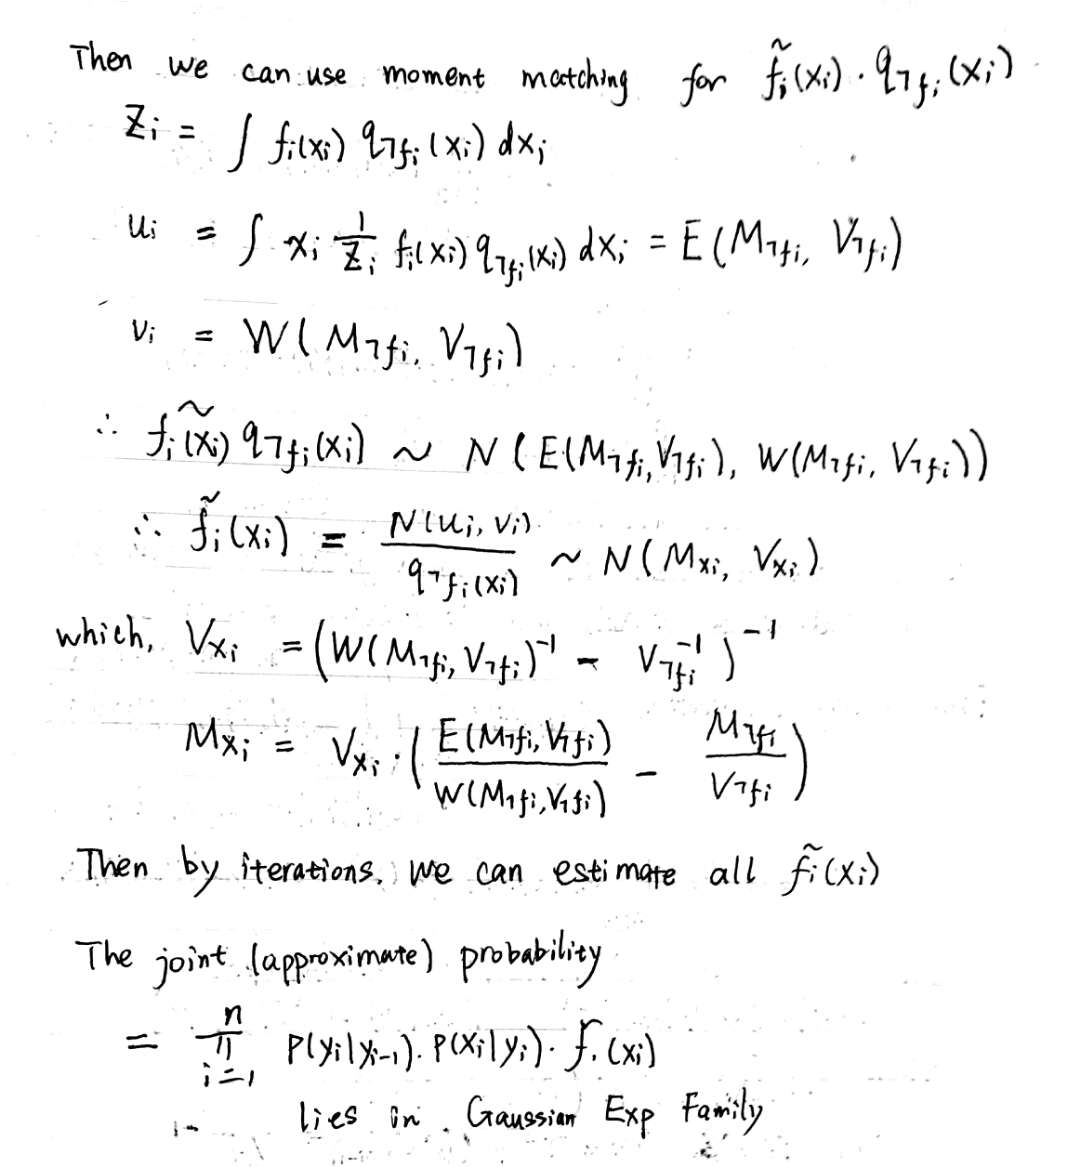 Then we can use moment matching for f̃ᵢ(xᵢ) · q¬fᵢ(xᵢ)
Zᵢ = ∫ fᵢ(xᵢ) q¬fᵢ(xᵢ) dxᵢ
uᵢ = ∫ xᵢ 1/Zᵢ fᵢ(xᵢ) q¬fᵢ(xᵢ) dxᵢ = E(M¬fᵢ, V¬fᵢ)
Vᵢ = W(M¬fᵢ, V¬fᵢ)
∴ f̃ᵢ(xᵢ) q¬fᵢ(xᵢ) ~ N(E(M¬fᵢ, V¬fᵢ), W(M¬fᵢ, V¬fᵢ))
∴ f̃ᵢ(xᵢ) = N(uᵢ, vᵢ) / q¬fᵢ(xᵢ) ~ N(Mxᵢ, Vxᵢ)
which, Vxᵢ = (W(M¬fᵢ, V¬fᵢ)⁻¹ - V¬fᵢ⁻¹)⁻¹
Mxᵢ = Vxᵢ · (E(M¬fᵢ, V¬fᵢ) / W(M¬fᵢ, V¬fᵢ) - M¬fᵢ / V¬fᵢ)
Then by iterations, we can estimate all f̃ᵢ(xᵢ)
The joint (approximate) probability
= ∏ᵢ₌₁ⁿ P(yᵢ|yᵢ₋₁) · P(xᵢ|yᵢ) · fᵢ(xᵢ)
lies in Gaussian Exp Family